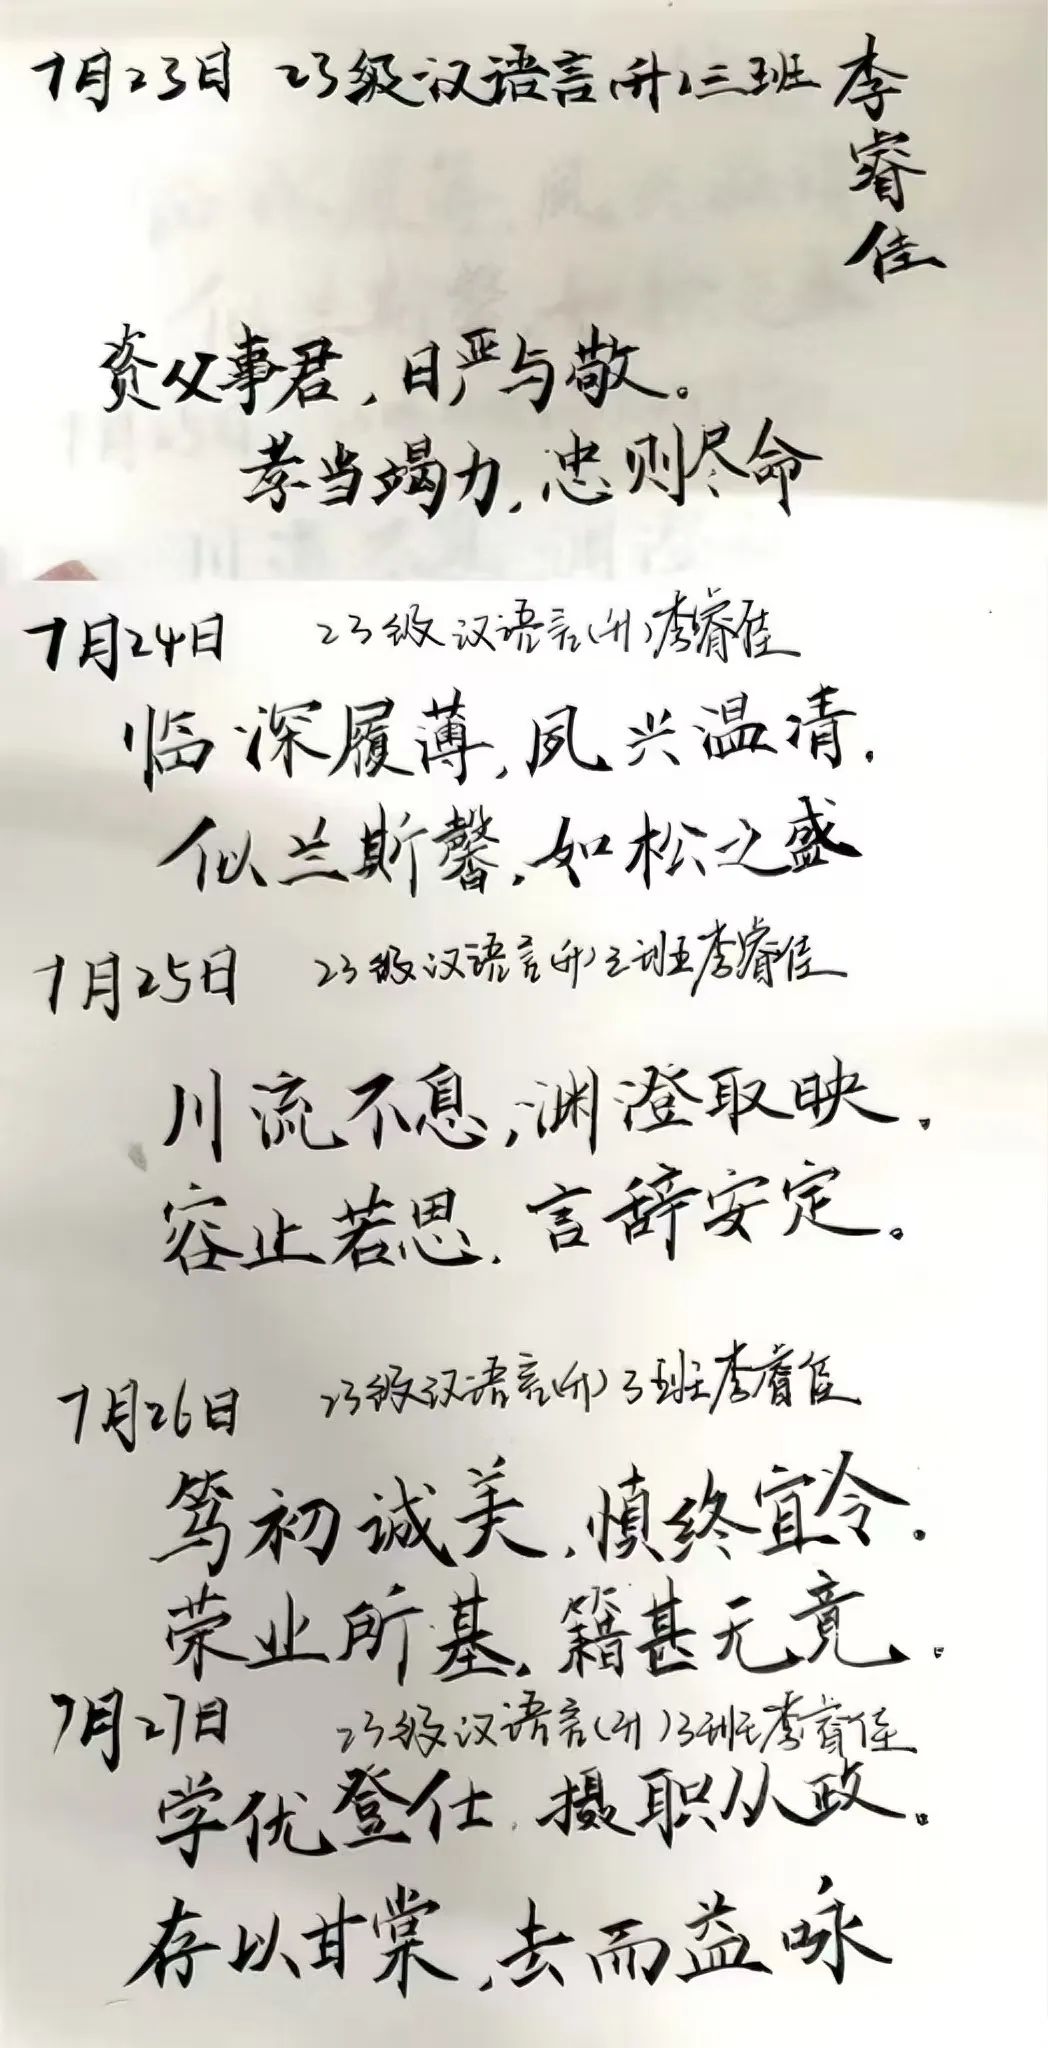 7月23日 23级汉语言(升)三班李睿佳
资父事君，日严与敬。
孝当竭力，忠则尽命
7月24日 23级汉语言(升)李睿佳
临深履薄，夙兴温清.
似兰斯馨，如松之盛
7月25日 23级汉语言(升)三班李睿佳
川流不息，渊澄取映.
容止若思.言辞安定。
7月26日 23级汉语言(升)3班李睿佳
笃初诚美，慎终宜令.
荣业所基.籍甚无竟.
7月27日 23级汉语言(升)3班李睿佳
学优登仕.摄职从政.
存以甘棠，去而益咏